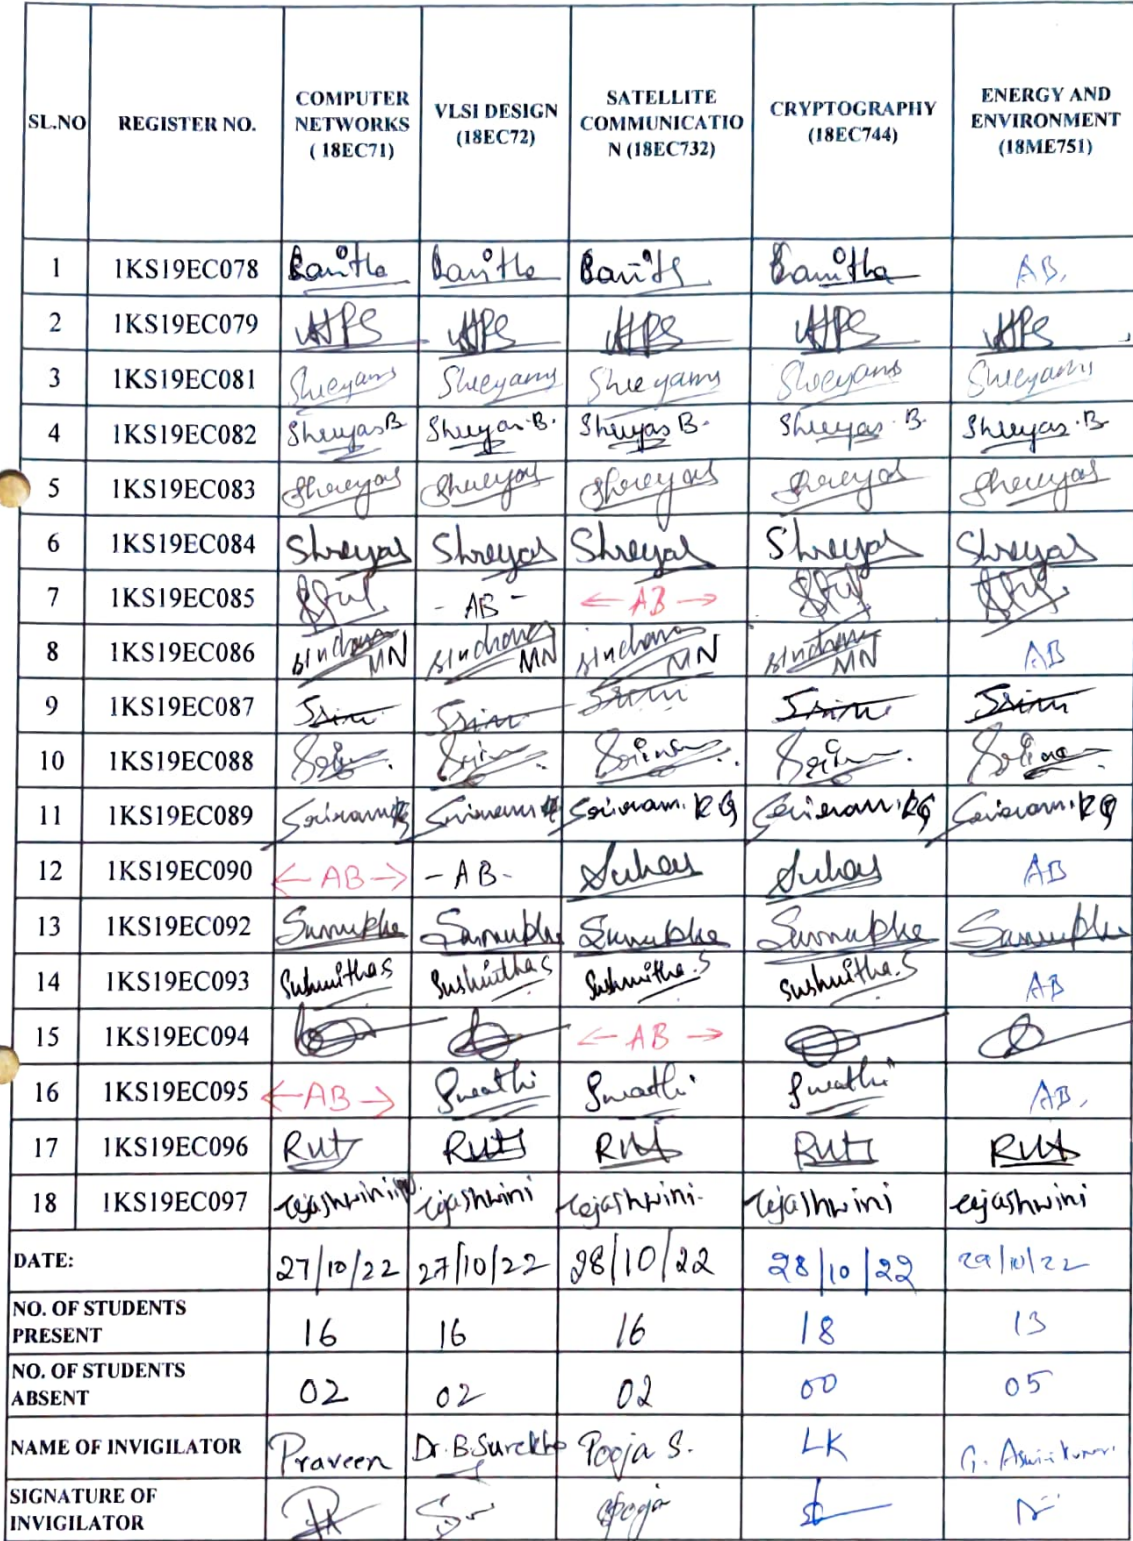 SL.NO REGISTER NO. COMPUTER NETWORKS ( 18EC71) VLSI DESIGN (18EC72) SATELLITE COMMUNICATIO N (18EC732) CRYPTOGRAPHY (18EC744) ENERGY AND ENVIRONMENT (18ME751)
1 1KS19EC078 AB.
2 1KS19EC079
3 1KS19EC081 Shreyams Shreyams Shreyams Shreyams Shreyams
4 1KS19EC082 Shreyas B Shreyas.B. Shreyas B. Shreyas.B. Shreyas.B.
5 1KS19EC083 Shreyas Shreyas Shreyas Shreyas Shreyas
6 1KS19EC084 Shreyas Shreyas Shreyas Shreyas Shreyas
7 1KS19EC085 - AB - <- AB ->
8 1KS19EC086 sinchana MN sinchana MN sinchana MN sinchana MN AB
9 1KS19EC087
10 1KS19EC088
11 1KS19EC089 Sriram. KG
12 1KS19EC090 <- AB -> - AB - Suhas Suhas AB
13 1KS19EC092
14 1KS19EC093 Sushmitha S Sushmitha S Sushmitha.S Sushmitha.S AB
15 1KS19EC094 <- AB ->
16 1KS19EC095 <- AB -> Swathi Swathi Swathi AB.
17 1KS19EC096
18 1KS19EC097 Tejashwini Tejashwini Tejashwini Tejashwini Tejashwini
DATE: 27/10/22 27/10/22 28/10/22 28/10/22 29/10/22
NO. OF STUDENTS PRESENT 16 16 16 18 13
NO. OF STUDENTS ABSENT 02 02 02 00 05
NAME OF INVIGILATOR Praveen Dr. B. Surekha Pooja S. LK G. Aswini Kumar
SIGNATURE OF INVIGILATOR Pooja